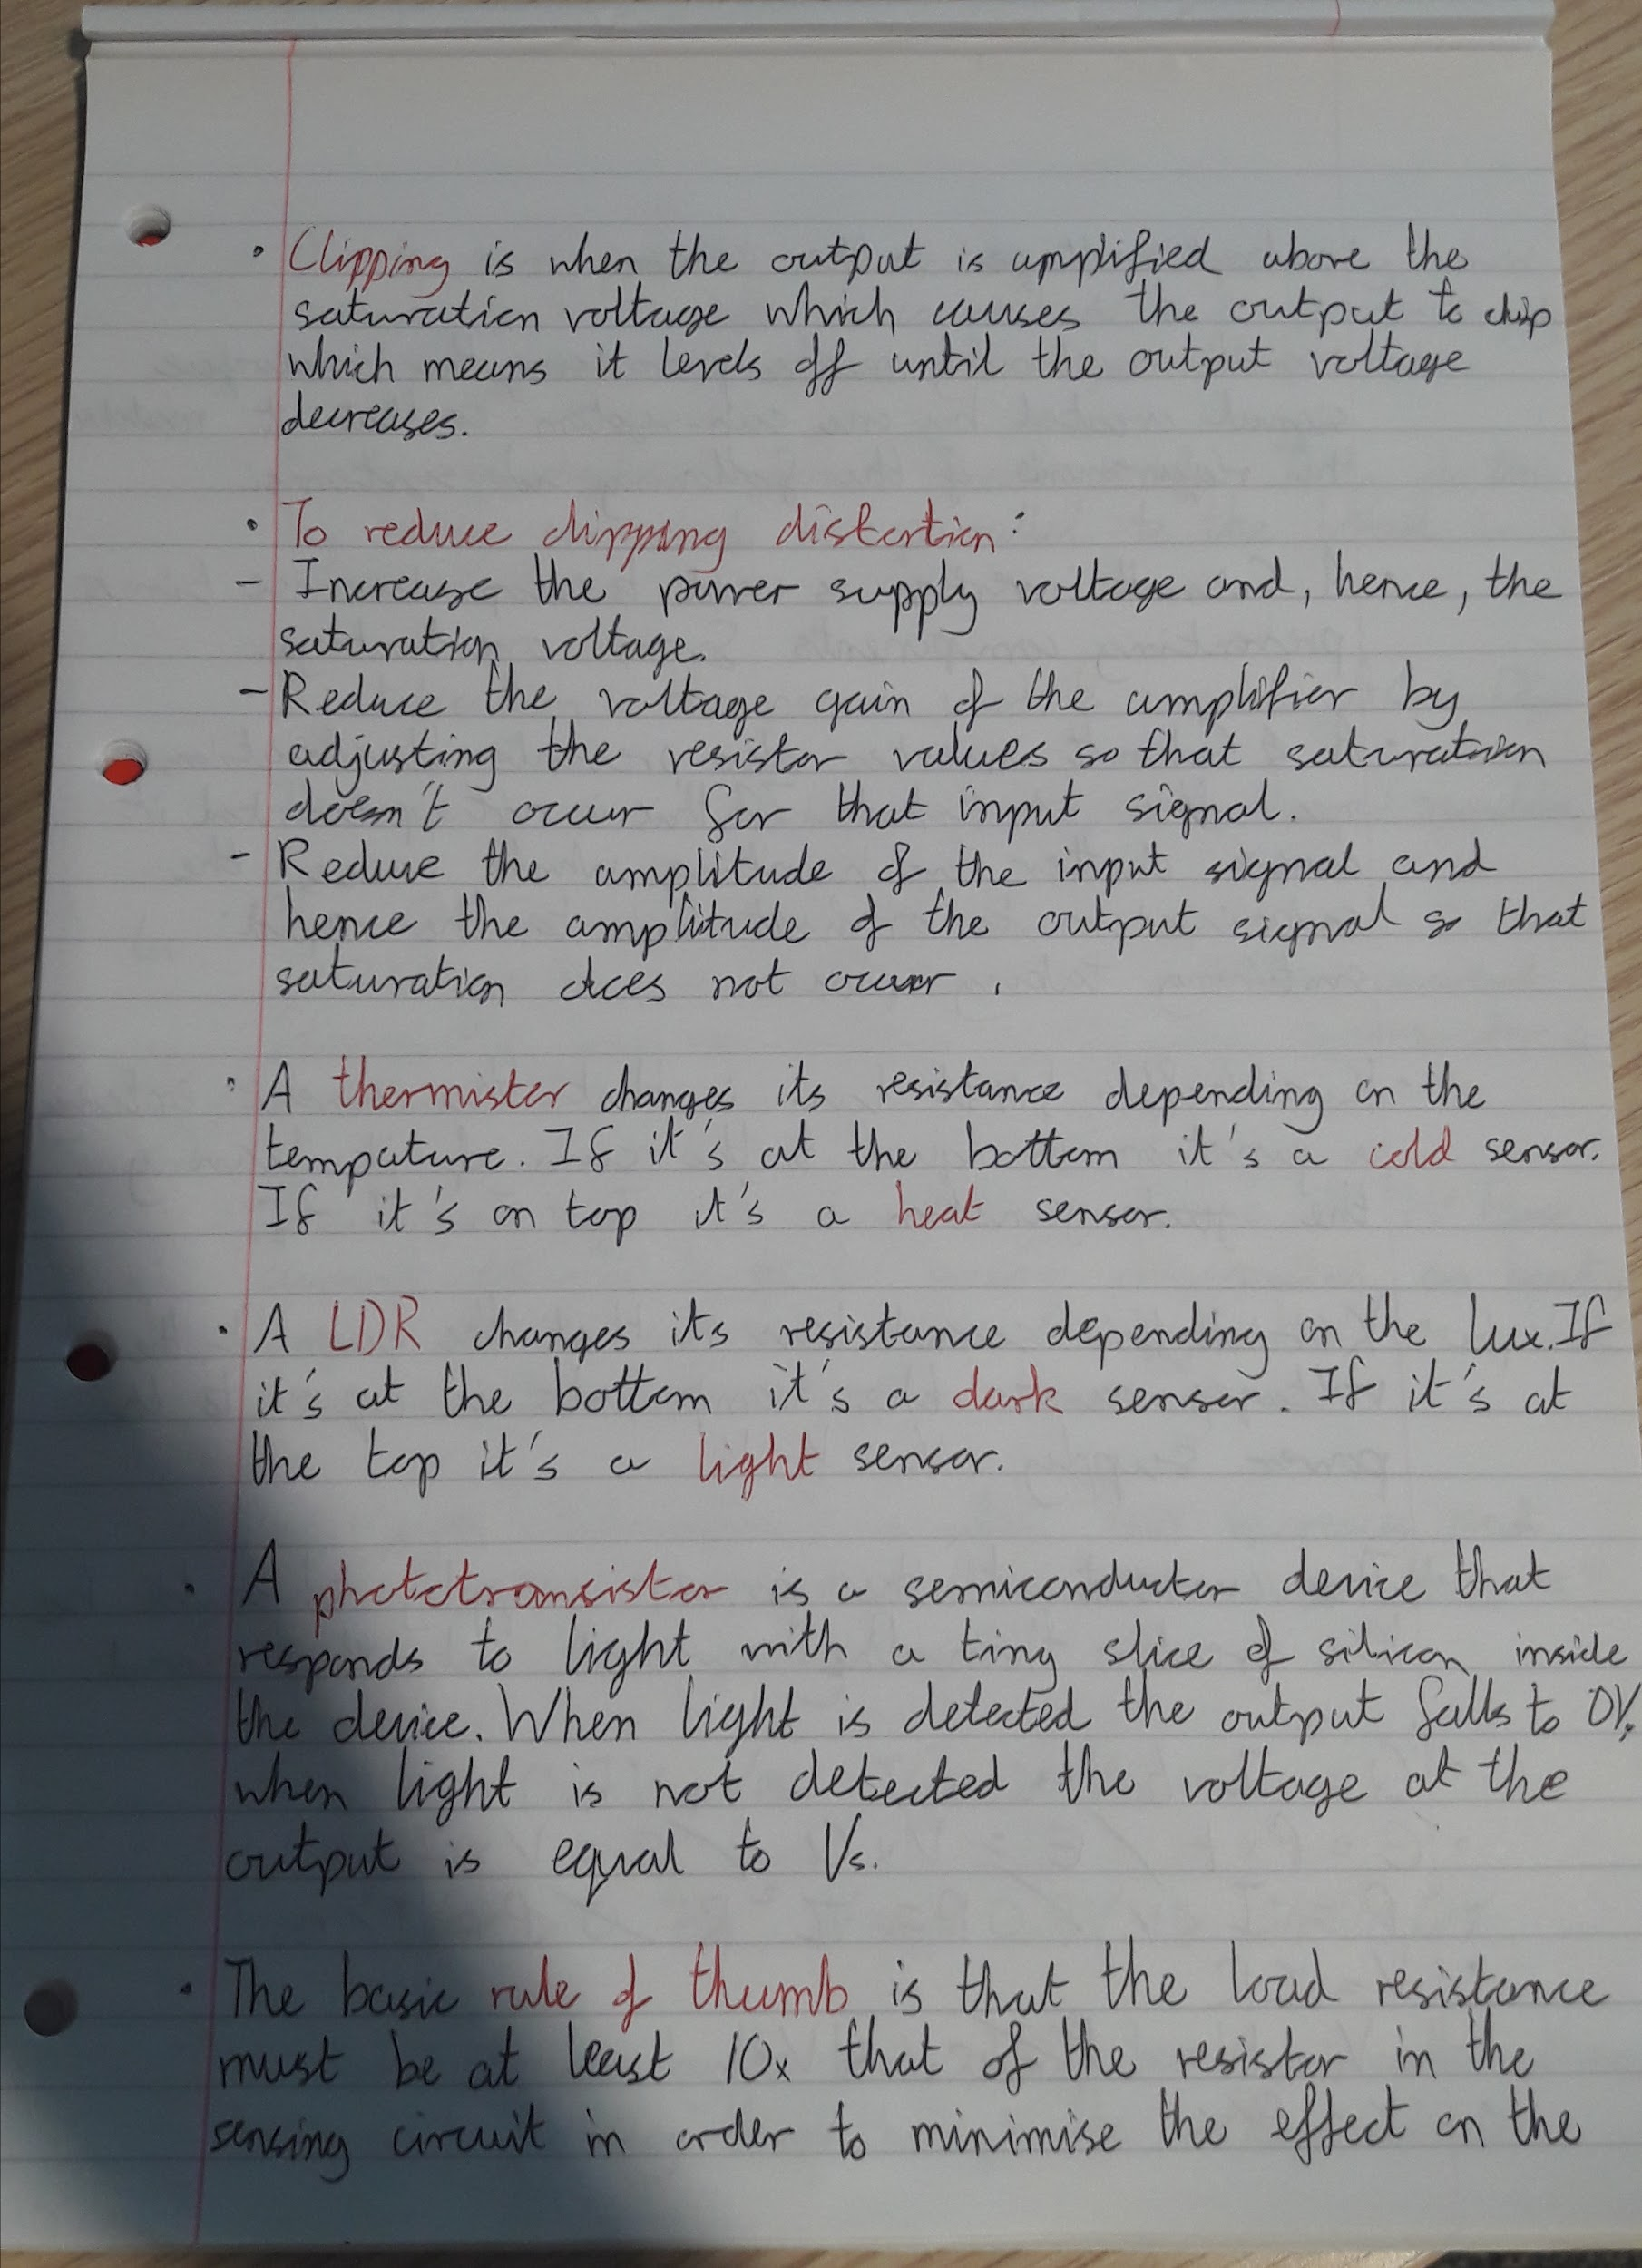 • Clipping is when the output is amplified above the
saturation voltage which causes the output to clip
which means it levels off until the output voltage
decreases.
• To reduce clipping distortion:
- Increase the power supply voltage and, hence, the
saturation voltage.
- Reduce the voltage gain of the amplifier by
adjusting the resistor values so that saturation
doesn't occur for that input signal.
- Reduce the amplitude of the input signal and
hence the amplitude of the output signal so that
saturation does not occur.
• A thermistor changes its resistance depending on the
tempature. If it's at the bottom it's a cold sensor.
If it's on top it's a heat sensor.
• A LDR changes its resistance depending on the lux. If
it's at the bottom it's a dark sensor. If it's at
the top it's a light sensor.
• A phototransistor is a semiconductor device that
responds to light with a tiny slice of silicon inside
the device. When light is detected the output falls to 0V,
when light is not detected the voltage at the
output is equal to Vs.
• The basic rule of thumb is that the load resistance
must be at least 10x that of the resistor in the
sensing circuit in order to minimise the effect on the